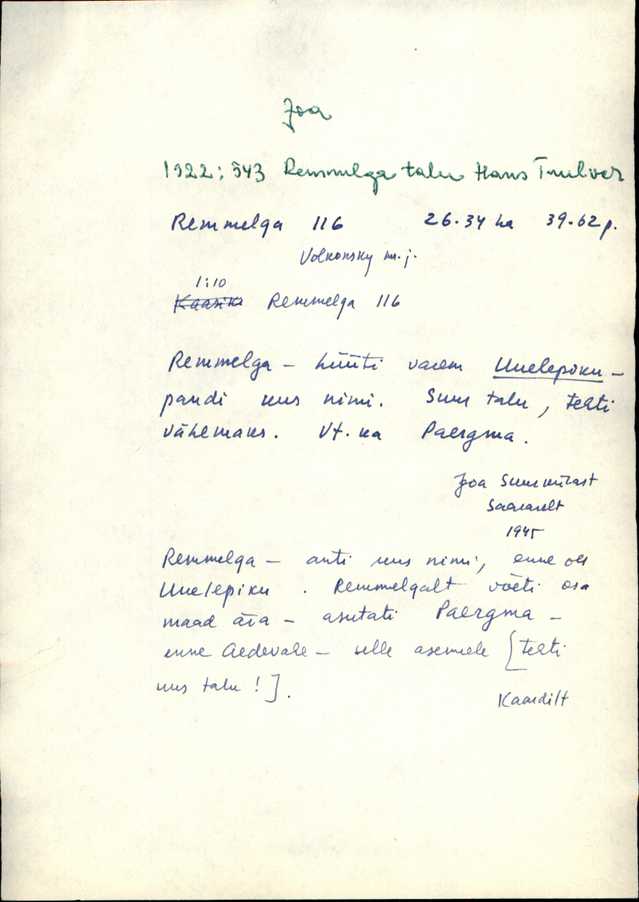 Joa
1922: 543 Remmelga talu Hans Trulver
Remmelga 116 26.34 ha 39.62 p.
Volkonsky m.j.
1:10
Kaasiku Remmelga 116
Remmelga – hüüti varem Uuelepiku –
pandi uus nimi. Suur talu, tehti
vähemaks. Vt. ka Paergma.
Joa Suurkülast
Saaravelt
1945
Remmelga – anti uus nimi, enne oli
Uuelepiku. Remmelgalt võeti osa
maad ära – asutati Paergma –
enne Aedevahe – selle asemele [tehti
uus talu!].
Kaardilt